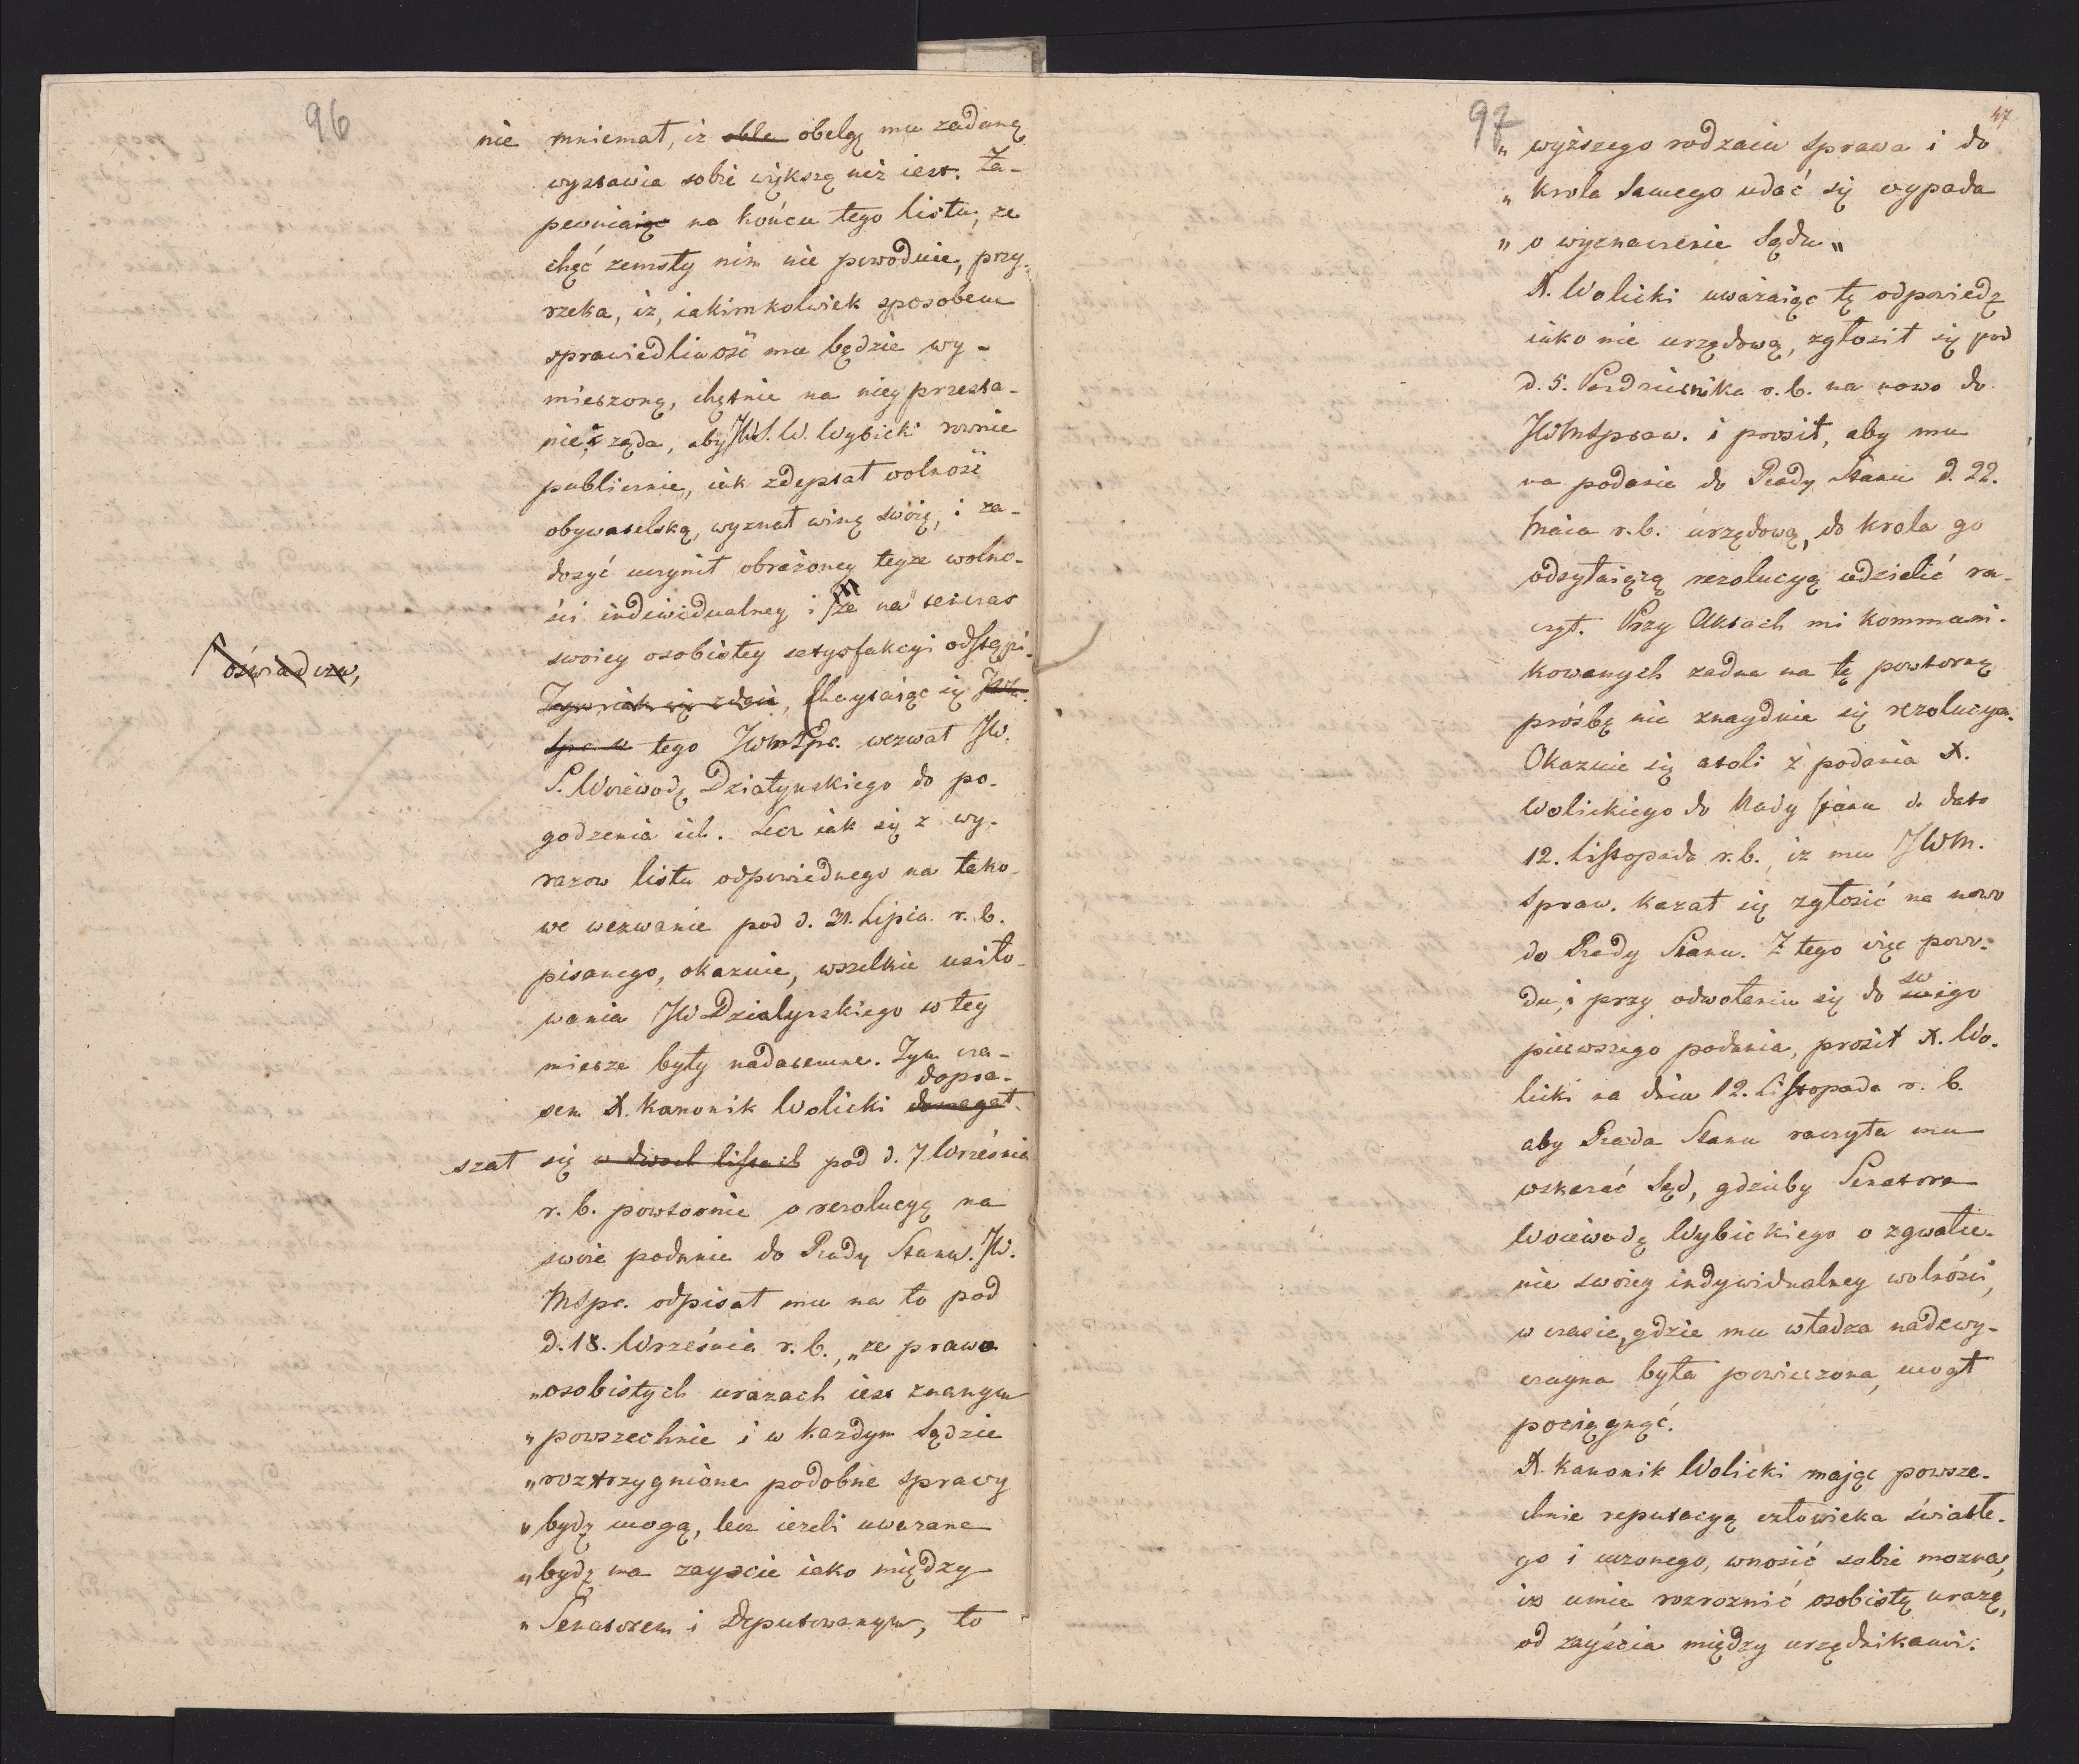 96
nie mniemał, iż obelgę mu zadaną
wystawia sobie większą niż iest. Za-
pewniaiąc na końcu tego listu, ze
chęć zemsty nim nie powoduie, przy-
rzeka, iż, iakimkolwiek sposobem
sprawiedliwość mu będzie wy-
mierzoną, chętnie na niey przesta-
nie, żąda, aby JW. S. W. Wybicki rownie
publicznie, iak zdeptał wolność
obywatelską, wyznał winę swoię, i za-
dosyć uczynił obrażoney teyze wolno-
ści indiwidualney i ze na tenczas
swoiey osobistey satysfakcyi odstąpi.
oświadcza,
Zaym iak się zdaie, Chwytaiąc się JWM.
Spr. w tego JWMSpr. wezwał JW.
S. Woiewodę Działynskiego do po-
godzenia ich. Lecz iak się z wy-
razow listu odpowiednego na tako-
we wezwanie pod d. 31. Lipca r. b.
pisanego, okazuie, wszelkie usiło-
wania JW Działynskiego w tey
mierze były nadaremne. Tym cza-
dopra-
sem X. Kanonik Wolicki domagał
szał się w dwoch listach pod d. 7 Września
r. b. powtornie o rezolucyę na
swoie podanie do Rady Stanu. JW.
MSpr. odpisał mu na to pod
d. 18. Września r. b., „ze prawo
„osobistych urazach iest znanym
„powszechnie i w każdym Sądzie
„roztrzygnione podobne sprawy
„bydź mogą, lecz ieżeli uwazane
„bydź ma zayscie iako między
„Senatorem i Deputowanym, to
97
47
„wyższego rodzaiu sprawa i do
„krola samego udać się wypada
„o wyznaczenie Sądu„
X. Wolicki uważaiąc tę odpowiedź
iako nie urzędową, zgłosił się pod
d. 5. Pazdziernika r. b. na nowo do
JWMSpraw. i prosił, aby mu
na podanie do Rady Stanu d. 22.
Maia r. b. urzędową, do krola go
odsyłaiącą rezolucyą udzielić ra-
czył. Przy Aktach mi kommuni-
kowanych zadna na tę powtorną
prośbę nie znayduie się rezolucya.
Okazuie się atoli z podania X.
Wolickiego do Rady Stanu d. dato
12. Listopada r. b., iz mu JWM.
Spraw. kazał się zgłosić na nowo
do Rady Stanu. Z tego więc powo-
sw
du, i przy odwołaniu się do swego
pierwszego podania, prosił X. Wo-
licki na dniu 12. Listopada r. b.
aby Rada Stanu raczyła mu
wskazać Sąd, gdzieby Senatora
Woiewodę Wybickiego o zgwałce-
nie swoiey indywidualney wolności,
w czasie, gdzie mu władza nadzwy-
czayna była powierzona, mogł
pociągnąć.
X. Kanonik Wolicki mając powsze-
chnie reputacyą człowieka światłe-
go i uczonego, wnosić sobie mozna,
iż umie rozroznić osobistą urazę,
od zayścia między urzędnikami.